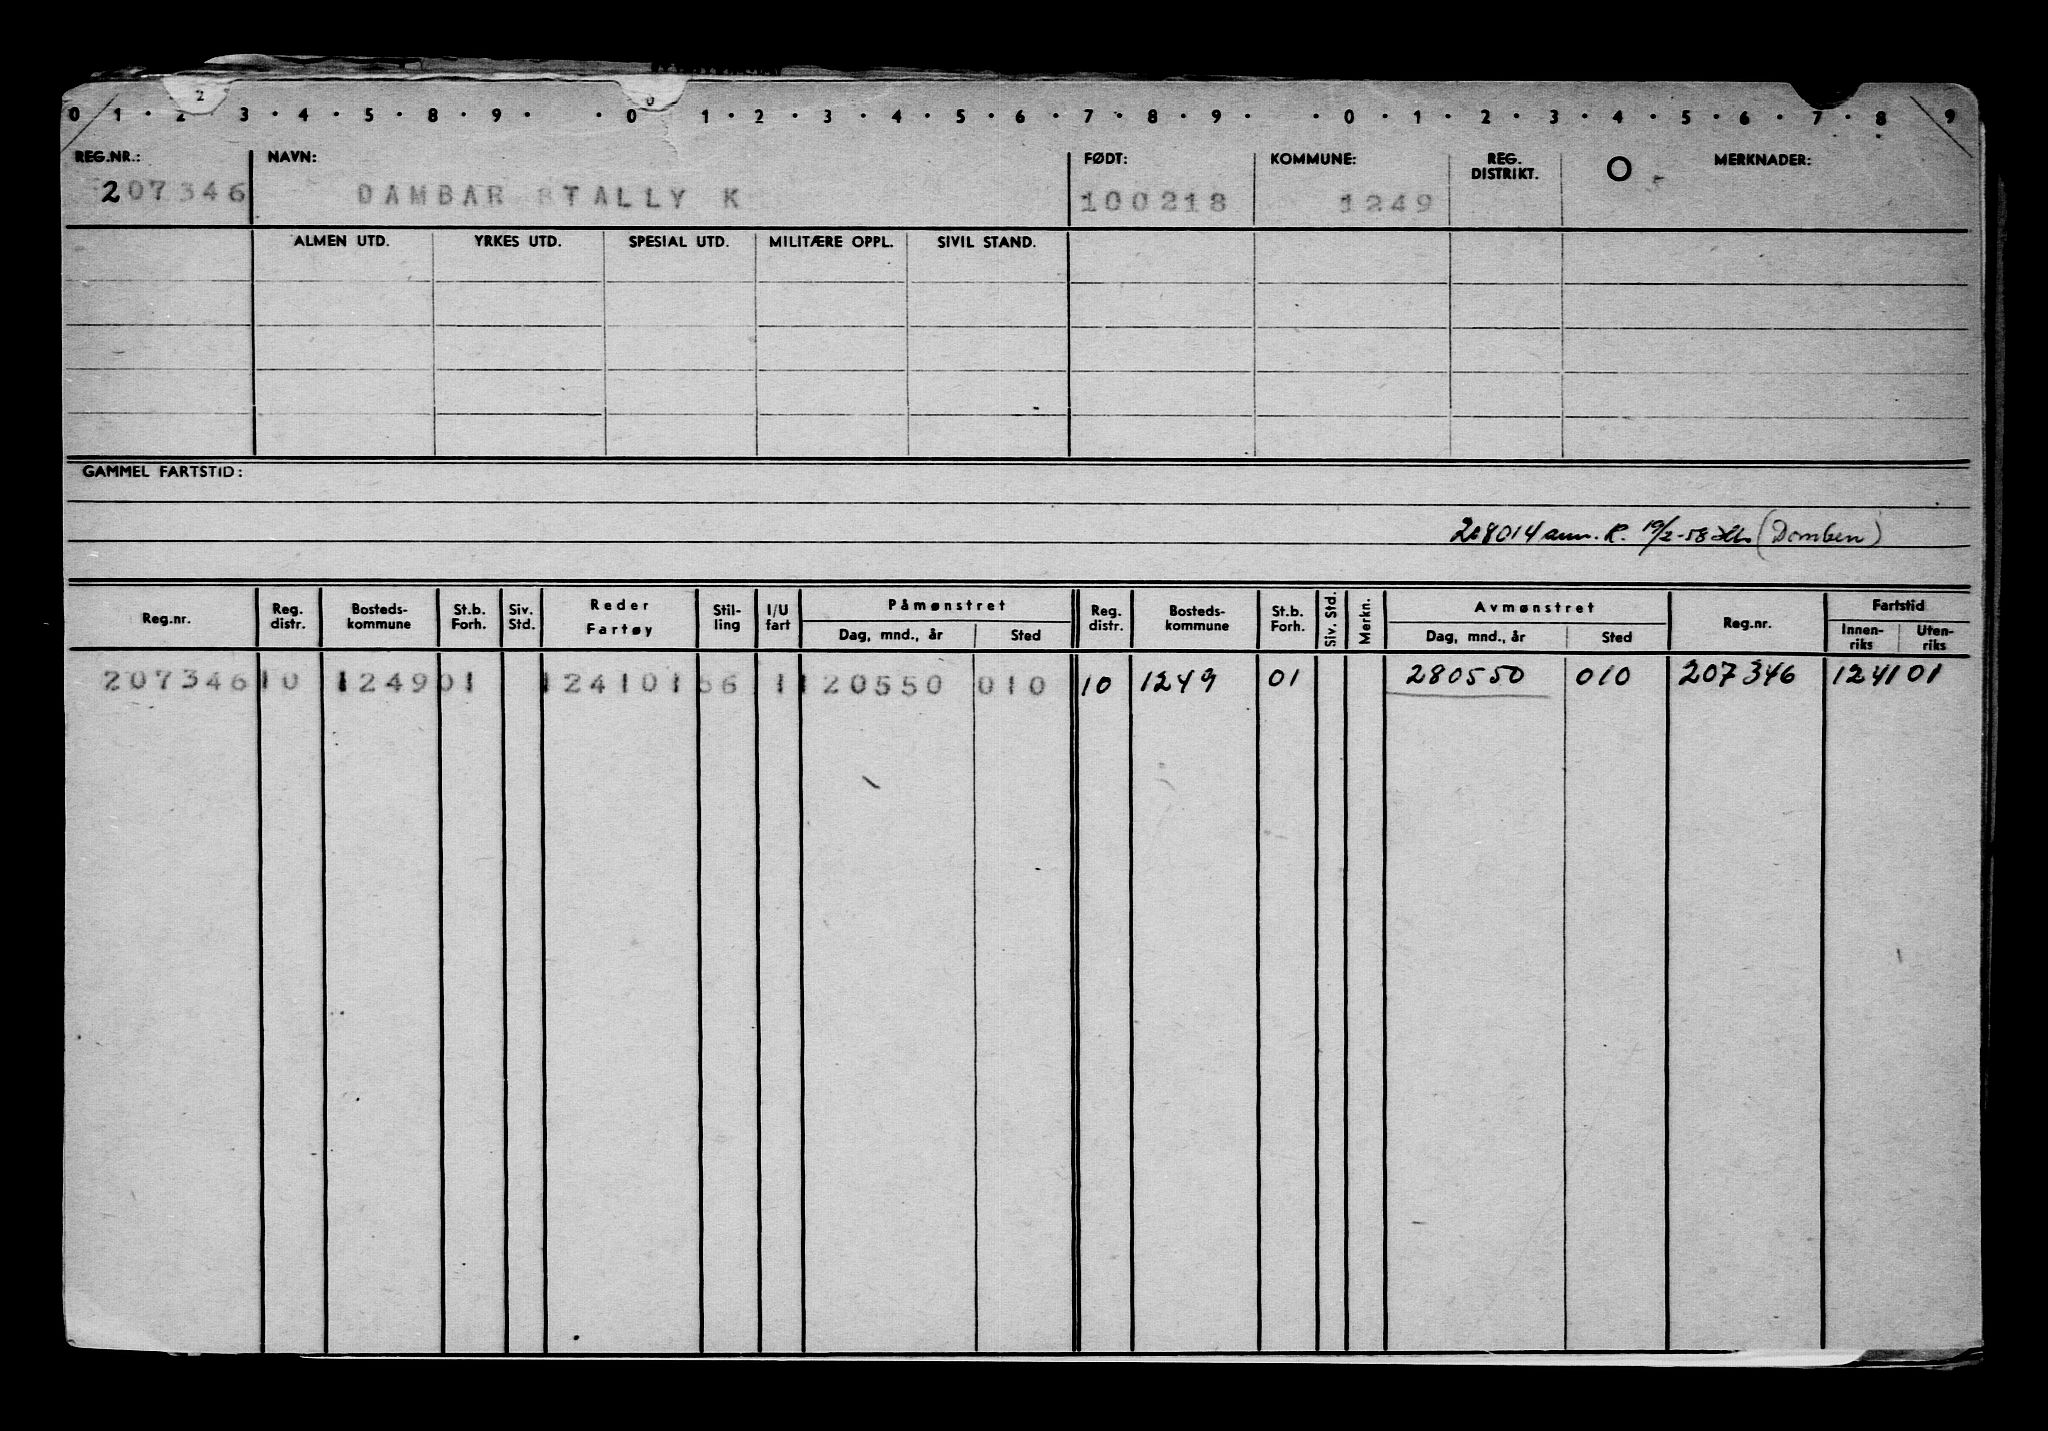 2 0
0 1 · 2 · 3 · 4 · 5 · 8 · 9 · · 0 1 · 2 · 3 · 4 · 5 · 6 · 7 · 8 · 9 · · 0 · 1 · 2 · 3 · 4 · 5 · 6 · 7 · 8 · 9
REG.NR.: NAVN: FØDT: KOMMUNE: REG. DISTRIKT. O MERKNADER:
207346 DAMBAR STALLY K 100218 1249
ALMEN UTD. YRKES UTD. SPESIAL UTD. MILITÆRE OPPL. SIVIL STAND.
GAMMEL FARTSTID:
268014 ann. R. 19/2-58 (Domben)
Reg.nr. Reg. distr. Bosteds-kommune St.b. Forh. Siv. Std. Reder Fartøy Stil-ling I/U fart Påmønstret Dag, mnd., år Sted Reg. distr. Bosteds-kommune St.b. Forh. Siv. Std. Merkn. Avmønstret Dag, mnd., år Sted Reg.nr. Fartstid Innen-riks Uten-riks
207346 10 1249 01 124101 56 1 120550 010 10 1249 01 280550 010 207346 1241 01